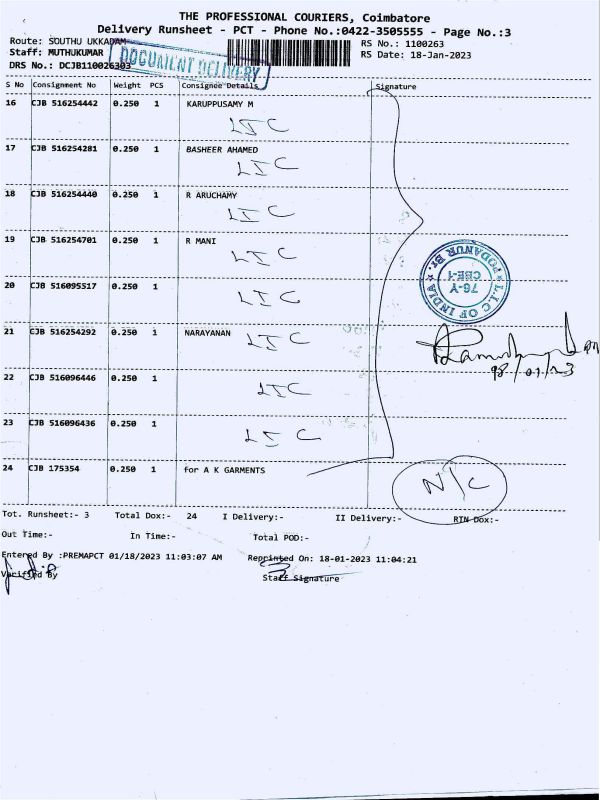 THE PROFESSIONAL COURIERS, Coimbatore
Delivery Runsheet - PCT - Phone No.:0422-3505555 - Page No.:3
Route: SOUTHU UKKADAM
RS No.: 1100263
Staff: MUTHUKUMAR
RS Date: 18-Jan-2023
DRS No.: DCJB110026303
DOCUMENT DELIVERY
S No Consignment No Weight PCS Consignee Details Signature
16 CJB 516254442 0.250 1 KARUPPUSAMY M
LIC
17 CJB 516254281 0.250 1 BASHEER AHAMED
LIC
18 CJB 516254440 0.250 1 R ARUCHAMY
LIC
19 CJB 516254701 0.250 1 R MANI
LIC
20 CJB 516095517 0.250 1
LIC
L.I.C OF INDIA
PODANUR Br.
76-Y
CBE-1
21 CJB 516254292 0.250 1 NARAYANAN
LIC
18/01/23
22 CJB 516096446 0.250 1
LIC
23 CJB 516096436 0.250 1
LIC
24 CJB 175354 0.250 1 for A K GARMENTS
N/C
Tot. Runsheet:- 3 Total Dox:- 24 I Delivery:- II Delivery:- RTN Dox:-
Out Time:- In Time:- Total POD:-
Entered By :PREMAPCT 01/18/2023 11:03:07 AM Reprinted On: 18-01-2023 11:04:21
Verified By Staff Signature